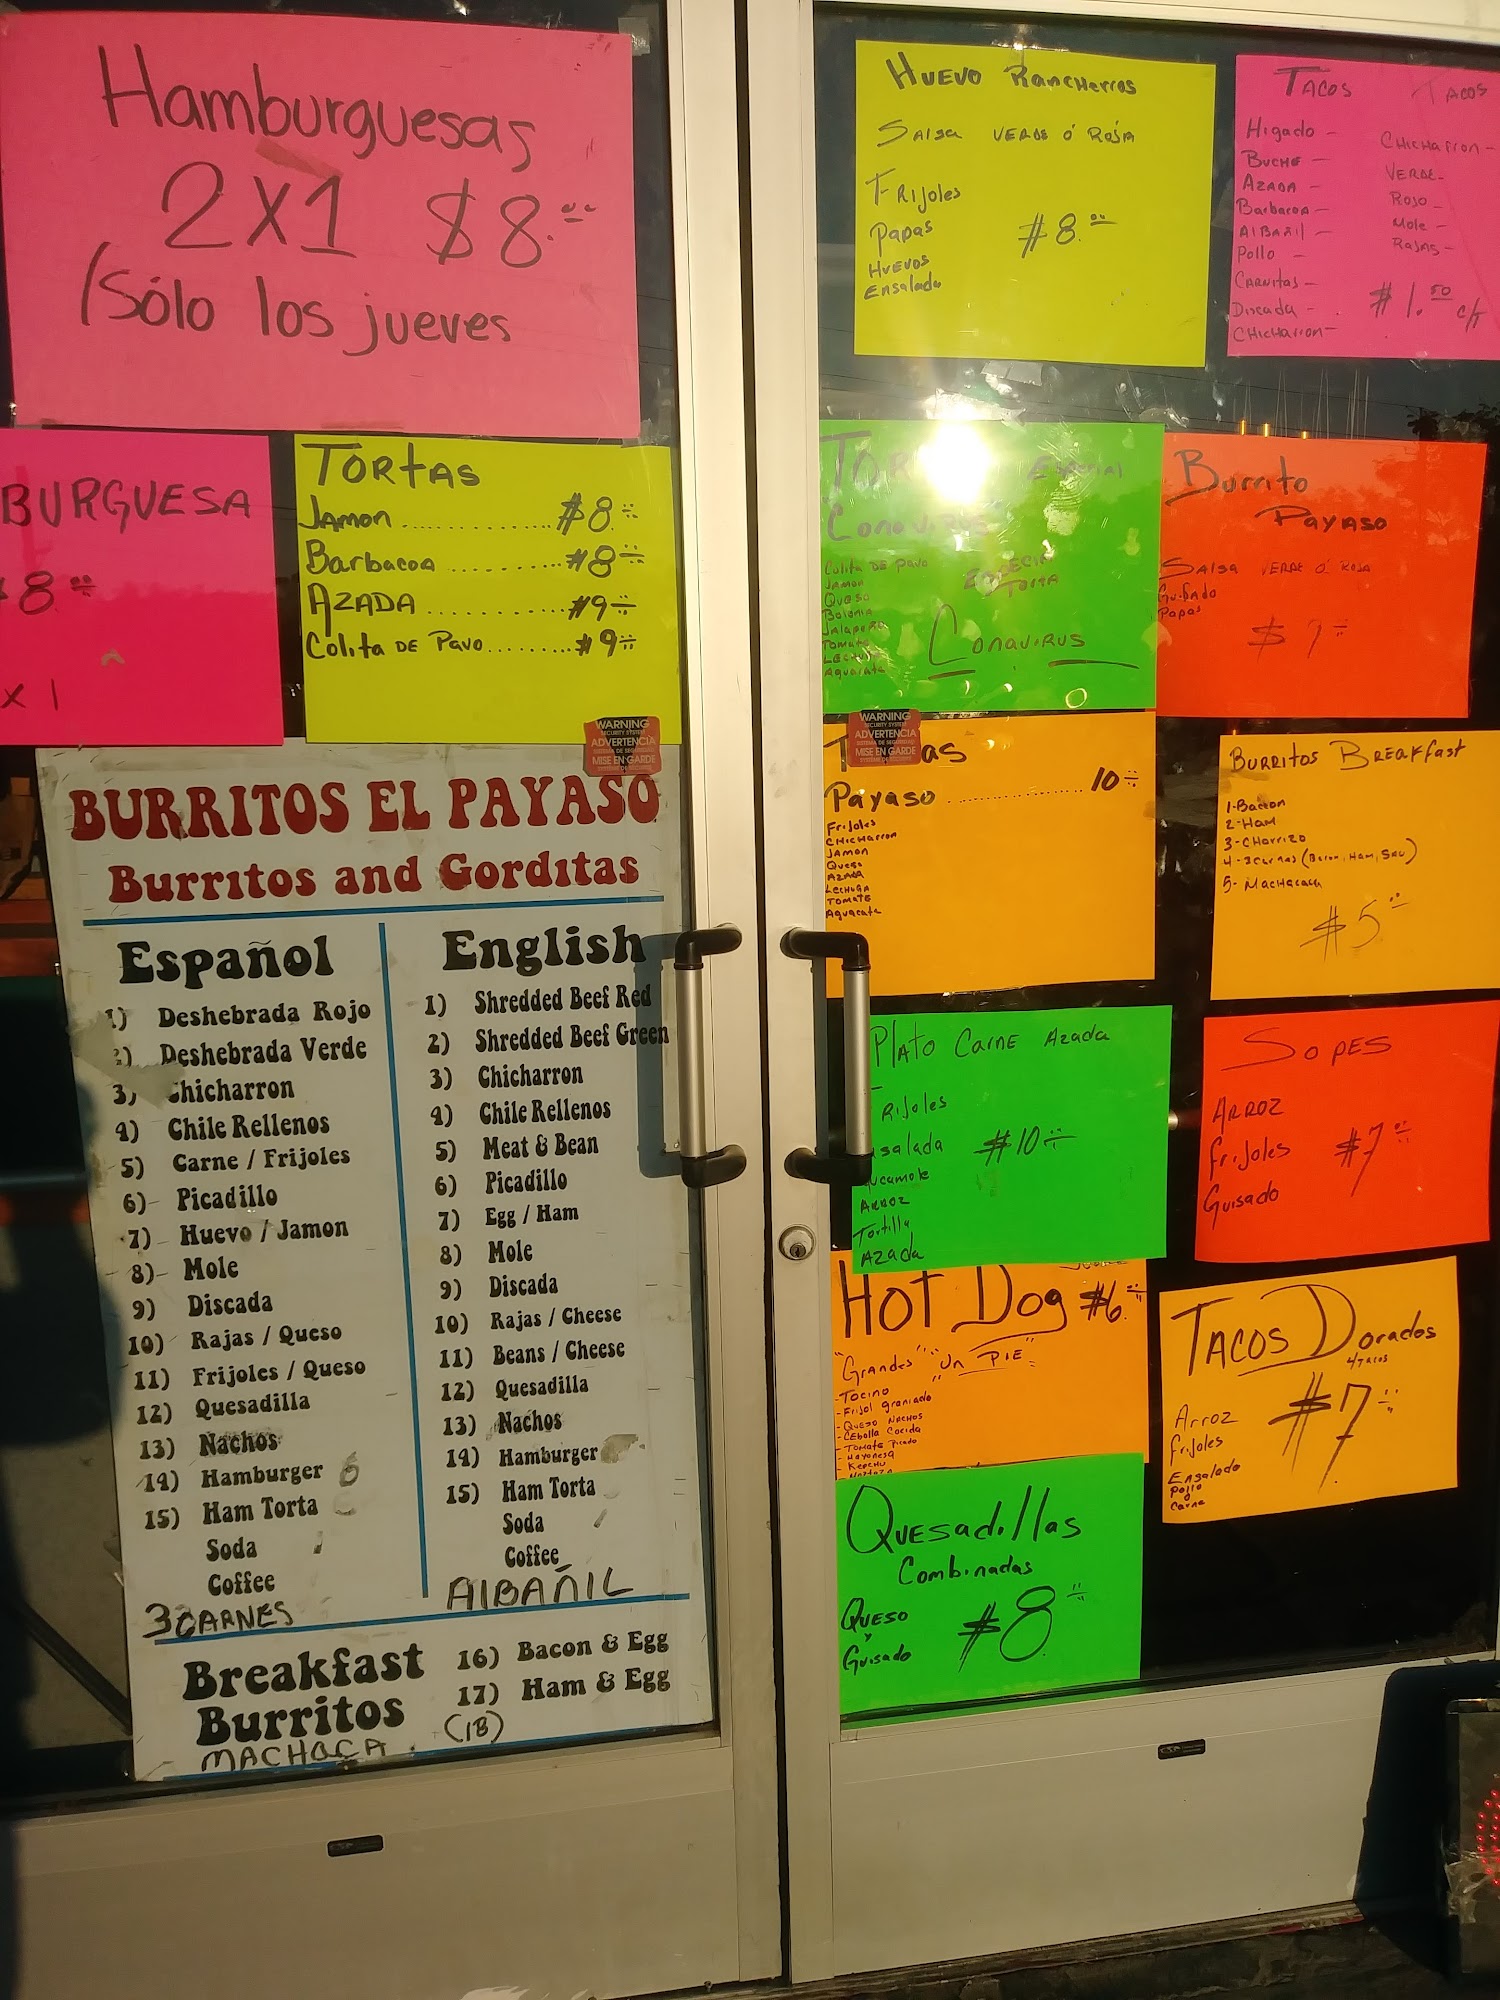 Hamburguesas
2x1 $8.
(Sólo los jueves
BURGUESA
$8.
x 1
TORTAS
JAMON .............. $8.
Barbacoa .......... $8
AZADA .............. $9
Colita DE Pavo ......... $9
WARNING
SECURITY SYSTEM
ADVERTENCIA
SISTEMA DE SEGURIDAD
MISE EN GARDE
BURRITOS EL PAYASO
Burritos and Gorditas
Español
1) Deshebrada Rojo
2) Deshebrada Verde
3) Chicharron
4) Chile Rellenos
5) Carne / Frijoles
6) Picadillo
7) Huevo / Jamon
8) Mole
9) Discada
10) Rajas / Queso
11) Frijoles / Queso
12) Quesadilla
13) Nachos
14) Hamburger
15) Ham Torta
Soda
Coffee
3 CARNES
English
1) Shredded Beef Red
2) Shredded Beef Green
3) Chicharron
4) Chile Rellenos
5) Meat & Bean
6) Picadillo
7) Egg / Ham
8) Mole
9) Discada
10) Rajas / Cheese
11) Beans / Cheese
12) Quesadilla
13) Nachos
14) Hamburger
15) Ham Torta
Soda
Coffee
AlBAÑIL
Breakfast
Burritos
MACHACA
16) Bacon & Egg
17) Ham & Egg
(18)
HUEVO RANCHerros
SAlsa VERDE Ó ROJA
FRIJoles
Papas
HUEVOS
Ensalada
$8.
TACOS TACOS
Higado -
BUCHE -
AZADA -
Barbacoa -
AlBAÑIL -
Pollo -
CARNITAS -
Discada -
CHICHARRON -
CHICHARRON -
VERDE -
ROJO -
Mole -
RAJAS -
$1.50 c/t
Especial
Colita DE Pavo
JAMON
QUESO
Bolonia
Jalapeño
Tomate
LECHUGA
Aguacate
TORTA
CoronaVIRUS
Burrito
Payaso
SAlsa VERDE Ó ROJA
Guisado
Papas
WARNING
SECURITY SYSTEM
ADVERTENCIA
SISTEMA DE SEGURIDAD
MISE EN GARDE
Payaso .................. 10
Frijoles
CHICHARRON
JAMON
Queso
AZADA
LECHUGA
TOMATE
Aguacate
BURRITOS BREAKfast
1-Bacon
2-HAM
3-CHorrizo
5- MacHacaca
$5
Plato CARNE Azada
FRIJoles
Ensalada
ARROZ
Tortilla
AZADA
$10
SOPES
ARROZ
frijoles
Guisado
$7
HOT DOG $6.
"Grandes" "UN PIE"
-TOCINO
-Frijol graniado
-QUESO NACHOS
-CEbolla Cocida
-TOMATE Picado
-Mayonesa
TACOS Dorados
4 TACOS
Arroz
frijoles
Ensalada
Pollo
o
Carne
$7
QUESadillas
Combinadas
QUESO
y
Guisado
$8